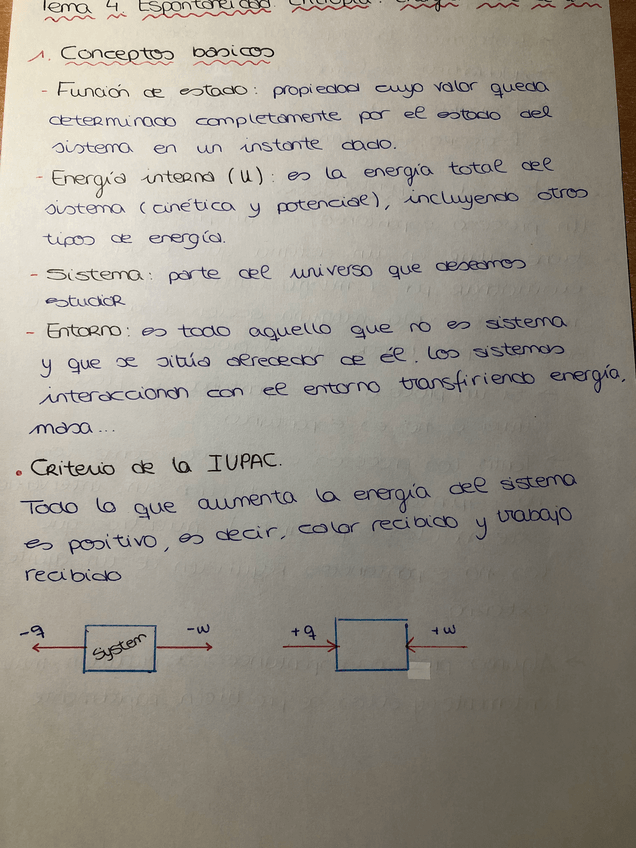 Tema 4. Espontaneidad. Entropía.
1. Conceptos básicos
- Función de estado: propiedad cuyo valor queda
determinado completamente por el estado del
sistema en un instante dado.
- Energía interna (U): es la energía total del
sistema (cinética y potencial), incluyendo otros
tipos de energía.
- Sistema: parte del universo que deseamos
estudiar
- Entorno: es todo aquello que no es sistema
y que se sitúa alrededor de él. Los sistemas
interaccionan con el entorno transfiriendo energía,
masa...
• Criterio de la IUPAC.
Todo lo que aumenta la energía del sistema
es positivo, es decir, calor recibido y trabajo
recibido
-q System -w +q +w